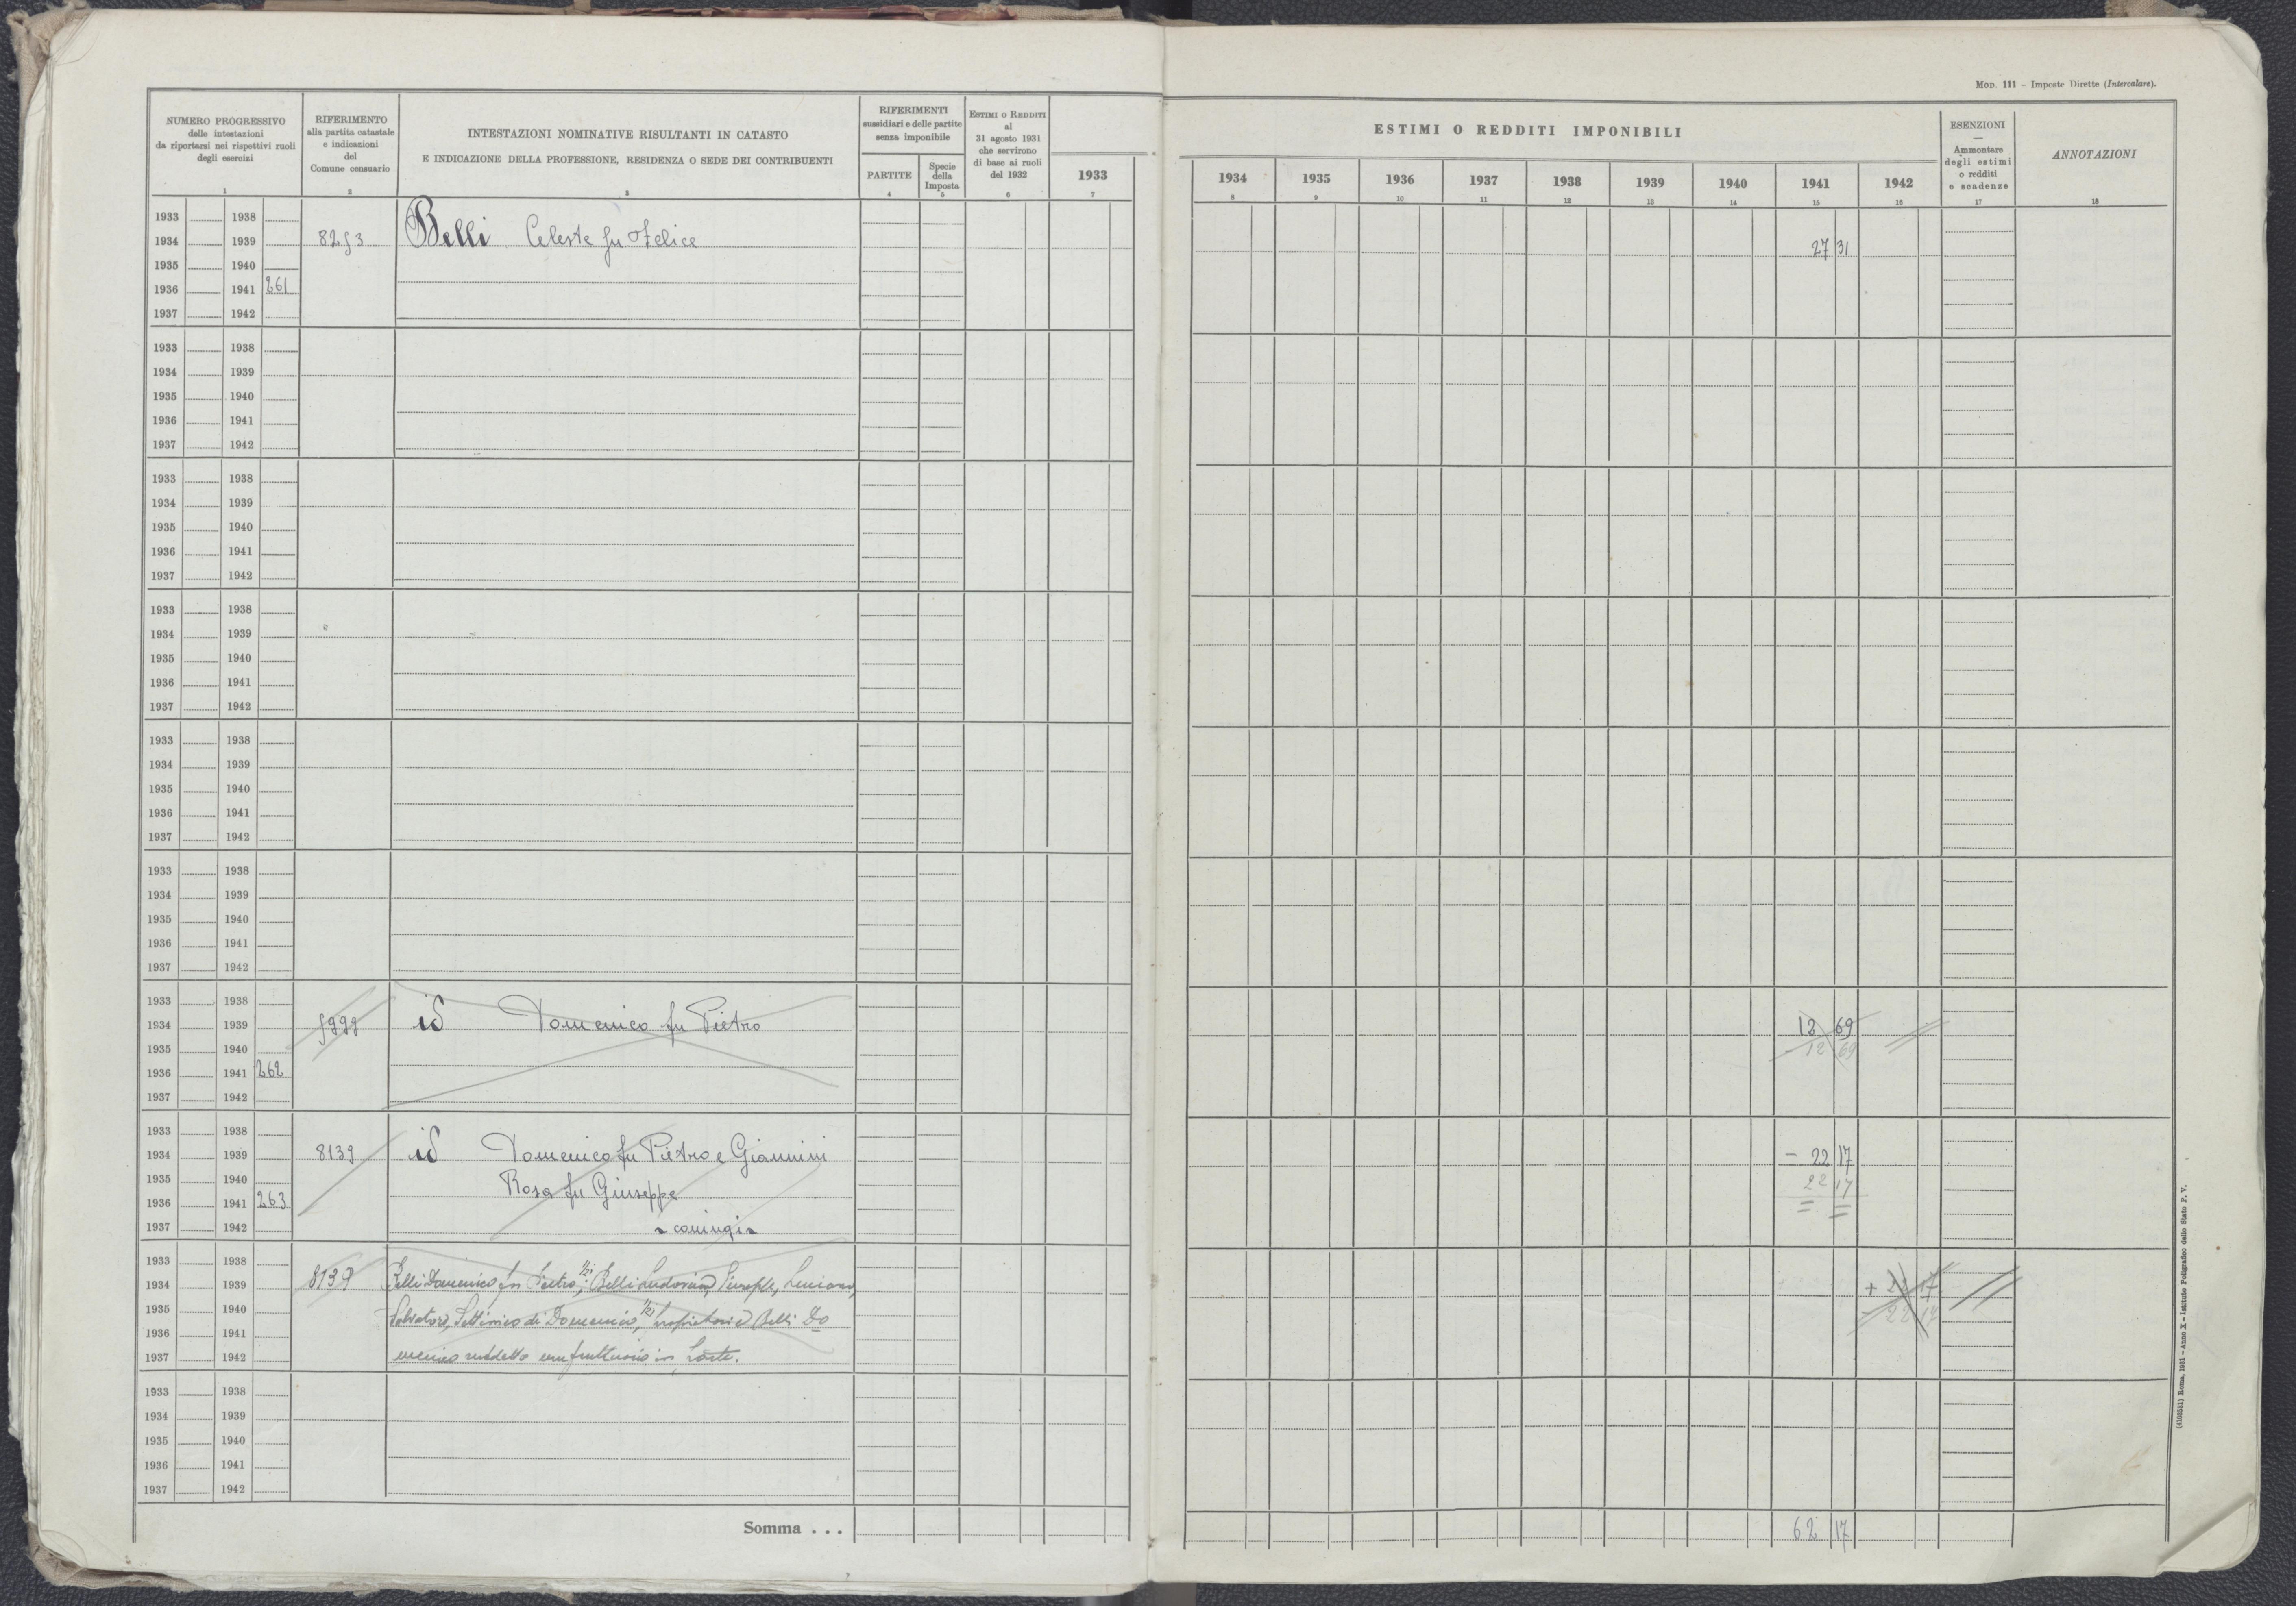 MOD. 111 – Imposte Dirette (Intercalare).
NUMERO PROGRESSIVO
delle intestazioni
da riportarsi nei rispettivi ruoli
degli esercizi
1
RIFERIMENTO
alla partita catastale
e indicazioni
del
Comune censuario
2
INTESTAZIONI NOMINATIVE RISULTANTI IN CATASTO
E INDICAZIONE DELLA PROFESSIONE, RESIDENZA O SEDE DEI CONTRIBUENTI
3
RIFERIMENTI
sussidiari e delle partite
senza imponibile
PARTITE
4
Specie
della
Imposta
5
ESTIMI O REDDITI
al
31 agosto 1931
che servirono
di base ai ruoli
del 1932
6
ESTIMI O REDDITI IMPONIBILI
1933
7
1934
8
1935
9
1936
10
1937
11
1938
12
1939
13
1940
14
1941
15
1942
16
ESENZIONI
—
Ammontare
degli estimi
o redditi
e scadenze
17
ANNOTAZIONI
18
1933 1938
1934 1939 Belli Celeste fu Felice 27 31
1935 1940
1936 1941 261
1937 1942
1933 1938
1934 1939
1935 1940
1936 1941
1937 1942
1933 1938
1934 1939
1935 1940
1936 1941
1937 1942
1933 1938
1934 1939
1935 1940
1936 1941
1937 1942
1933 1938
1934 1939
1935 1940
1936 1941
1937 1942
1933 1938
1934 1939
1935 1940
1936 1941
1937 1942
1933 1938
1934 1939 id Domenico fu Pietro 12 69
1935 1940 12 69
1936 1941 262
1937 1942
1933 1938
1934 1939 8139 id Domenico fu Pietro e Giannini – 22 17
1935 1940 Rosa fu Giuseppe 22 17
1936 1941 263
1937 1942 coniugi
1933 1938
1934 1939 8139 Belli Domenico fu Pietro 1/2; Belli Giuseppe, Luciano, + 22 17
1935 1940 Salvatore, Settimio di Domenico, 1/2 proprietari e Belli Do 22 17
1936 1941
1937 1942 menico suddetto usufruttuario in parte.
1933 1938
1934 1939
1935 1940
1936 1941
1937 1942
Somma . . . 62 17
(4108531) Roma, 1931 – Anno X – Istituto Poligrafico dello Stato P. V.